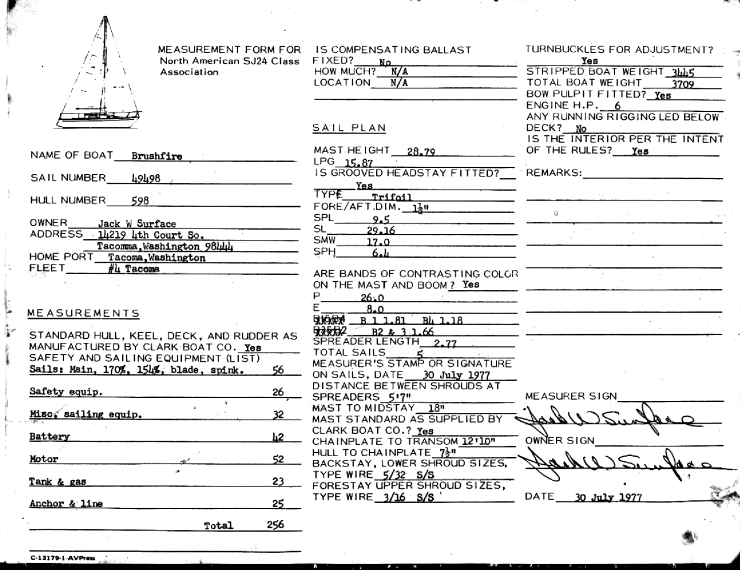 MEASUREMENT FORM FOR
North American SJ24 Class
Association
NAME OF BOAT Brushfire
SAIL NUMBER 49498
HULL NUMBER 598
OWNER Jack W Surface
ADDRESS 14219 4th Court So.
Tacomma,Washington 98444
HOME PORT Tacoma,Washington
FLEET #4 Tacoma
MEASUREMENTS
STANDARD HULL, KEEL, DECK, AND RUDDER AS
MANUFACTURED BY CLARK BOAT CO. Yes
SAFETY AND SAILING EQUIPMENT (LIST)
Sails: Main, 170%, 154%, blade, spink. 56
Safety equip. 26
Misc. sailing equip. 32
Battery 42
Motor 52
Tank & gas 23
Anchor & line 25
Total 256
C-13179-1-AVPress
IS COMPENSATING BALLAST
FIXED? No
HOW MUCH? N/A
LOCATION N/A
SAIL PLAN
MAST HEIGHT 28.79
LPG 15.87
IS GROOVED HEADSTAY FITTED?
Yes
TYPE Trifoil
FORE/AFT.DIM. 1½"
SPL 9.5
SL 29.16
SMW 17.0
SPH 6.4
ARE BANDS OF CONTRASTING COLOR
ON THE MAST AND BOOM? Yes
P 26.0
E 8.0
B 1 1.81 B4 1.18
B2 & 3 1.66
SPREADER LENGTH 2.77
TOTAL SAILS 5
MEASURER'S STAMP OR SIGNATURE
ON SAILS, DATE 30 July 1977
DISTANCE BETWEEN SHROUDS AT
SPREADERS 5'7"
MAST TO MIDSTAY 18"
MAST STANDARD AS SUPPLIED BY
CLARK BOAT CO.? Yes
CHAINPLATE TO TRANSOM 12'10"
HULL TO CHAINPLATE 7½"
BACKSTAY, LOWER SHROUD SIZES,
TYPE WIRE 5/32 S/S
FORESTAY UPPER SHROUD SIZES,
TYPE WIRE 3/16 S/S
TURNBUCKLES FOR ADJUSTMENT?
Yes
STRIPPED BOAT WEIGHT 3445
TOTAL BOAT WEIGHT 3709
BOW PULPIT FITTED? Yes
ENGINE H.P. 6
ANY RUNNING RIGGING LED BELOW
DECK? No
IS THE INTERIOR PER THE INTENT
OF THE RULES? Yes
REMARKS:
MEASURER SIGN
Jack W Surface
OWNER SIGN
Jack W Surface
DATE 30 July 1977